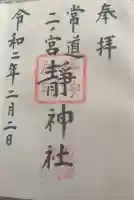 奉拝
常道二ノ宮
靜神社
令和二年二月二日